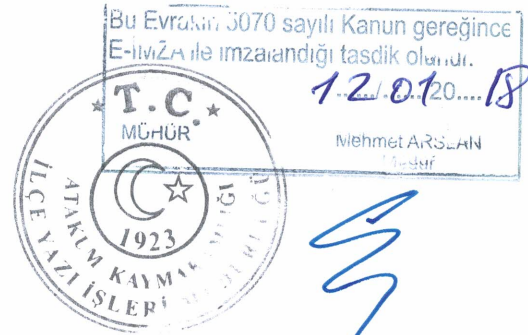 Bu Evrakın 5070 sayılı Kanun gereğince
E-İMZA ile imzalandığı tasdik olunur.
12.01.20....18
Mehmet ARSLAN
Müdür
T.C.
MÜHÜR
ATAKUM KAYMAKAMLIĞI
İLÇE YAZI İŞLERİ MÜDÜRLÜĞÜ
1923